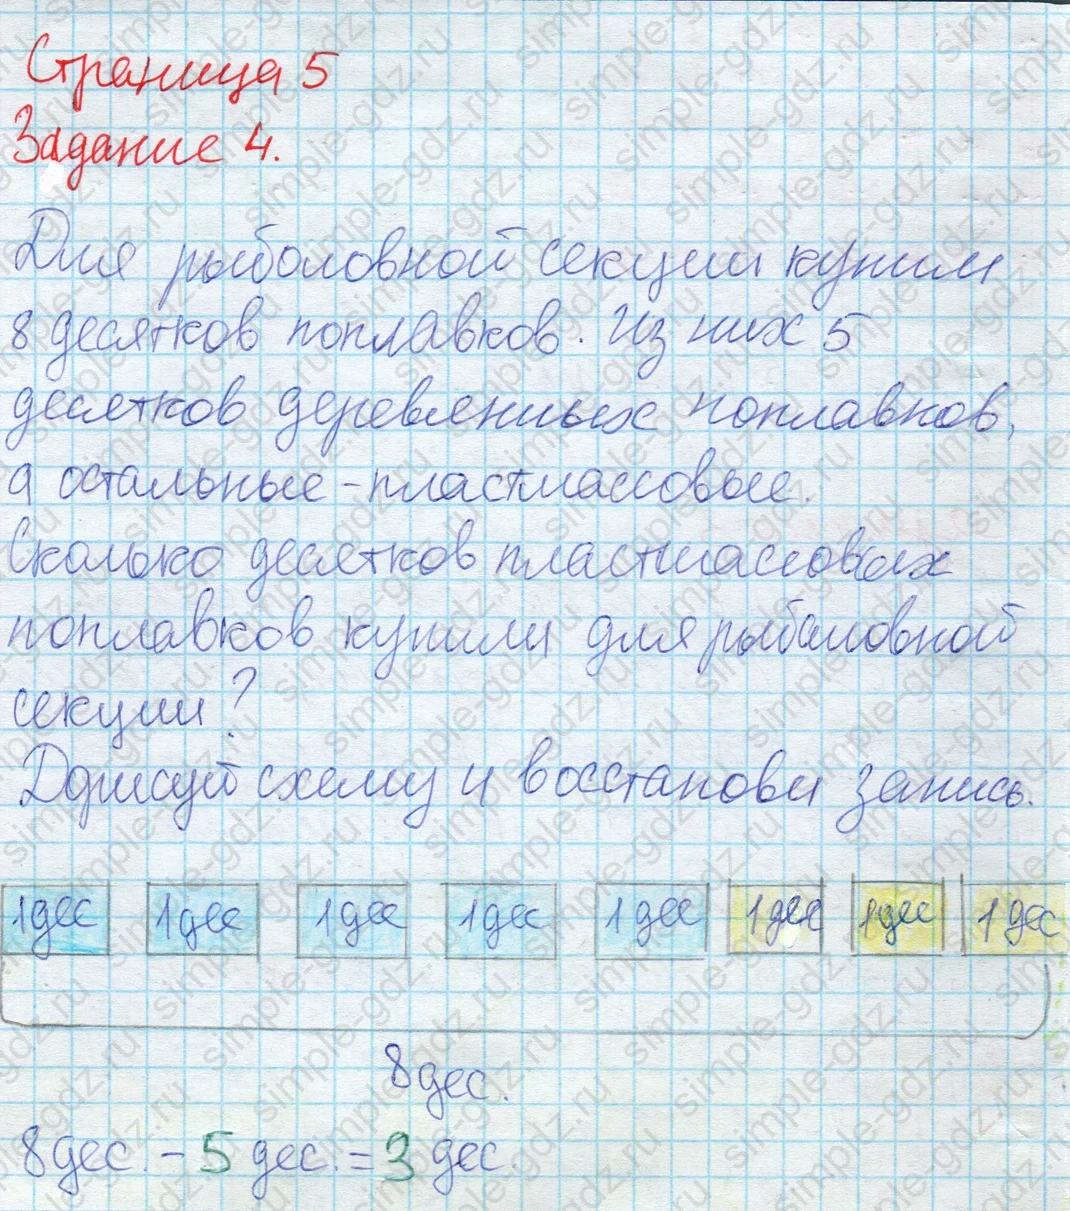 Страница 5
Задание 4.
Для рыболовной секции купили
8 десятков поплавков. Из них 5
десятков деревянных поплавков,
а остальные - пластмассовые.
Сколько десятков пластмассовых
поплавков купили для рыболовной
секции?
Дорисуй схему и восстанови запись.
1 дес 1 дес 1 дес 1 дес 1 дес 1 дес 1 дес 1 дес
8 дес.
8 дес. - 5 дес. = 3 дес.
simple-gdz.ru